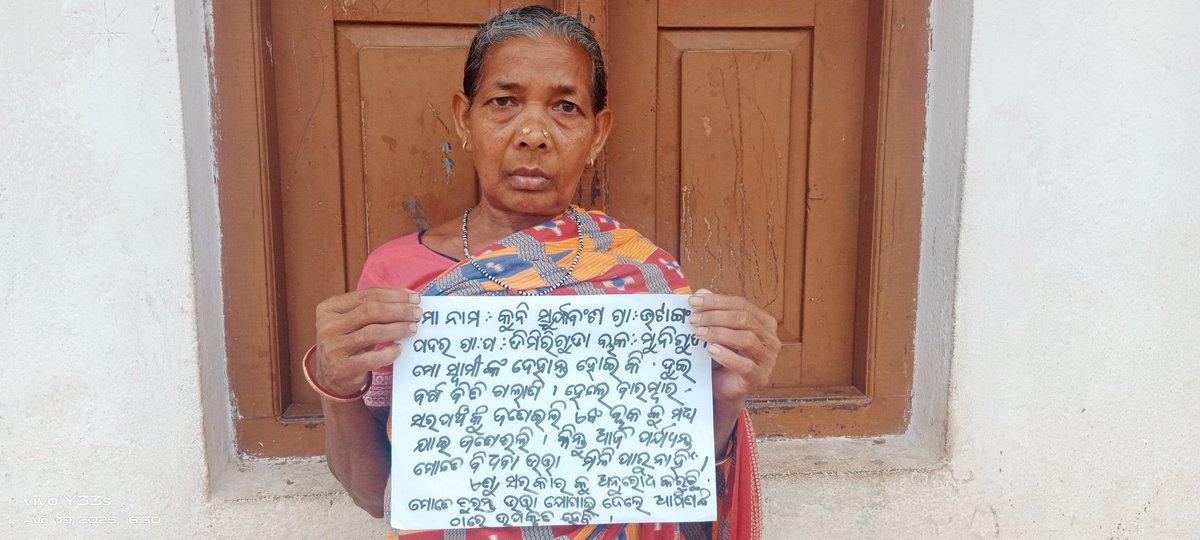 ମୋ ନାମ :- କୁନି ସୁର୍ଯ୍ୟବଂଶ ଗ୍ରା:-ଭଟାଙ୍ଗ
ପଦର ଗ୍ରା:ପ :- ଡିମିରିଗୁଡା ବ୍ଲକ :- ମୁନିଗୁଡା
ମୋ ସ୍ୱାମୀ ଙ୍କ ଦେହାନ୍ତ ହୋଇ କି ଦୁଇ
ବର୍ଷ ବିତି ଗଲାଣି । ହେଲେ ବାରମ୍ବାର
ସରପଞ୍ଚଙ୍କୁ ଜଣେଇଲି ଏବଂ ବ୍ଲକ କୁ ମଧ୍ୟ
ଯାଇ ଜଣେଇଲି । କିନ୍ତୁ ଆଜି ପର୍ଯ୍ୟନ୍ତ
ମୋତେ ବିଧବା ଭତ୍ତା ମିଳି ପାରୁନାହିଁ ।
ଏଣୁ ସରକାର କୁ ଅନୁରୋଧ କରୁଛି
ମୋତେ ତୁରନ୍ତ ଭତ୍ତା ଯୋଗାଇ ଦେଲେ ଆପଣଙ୍କ
ଠାରେ ଉପକୃତ ହେବି ।
vivo Y33s
Aug 09, 2025, 16:30